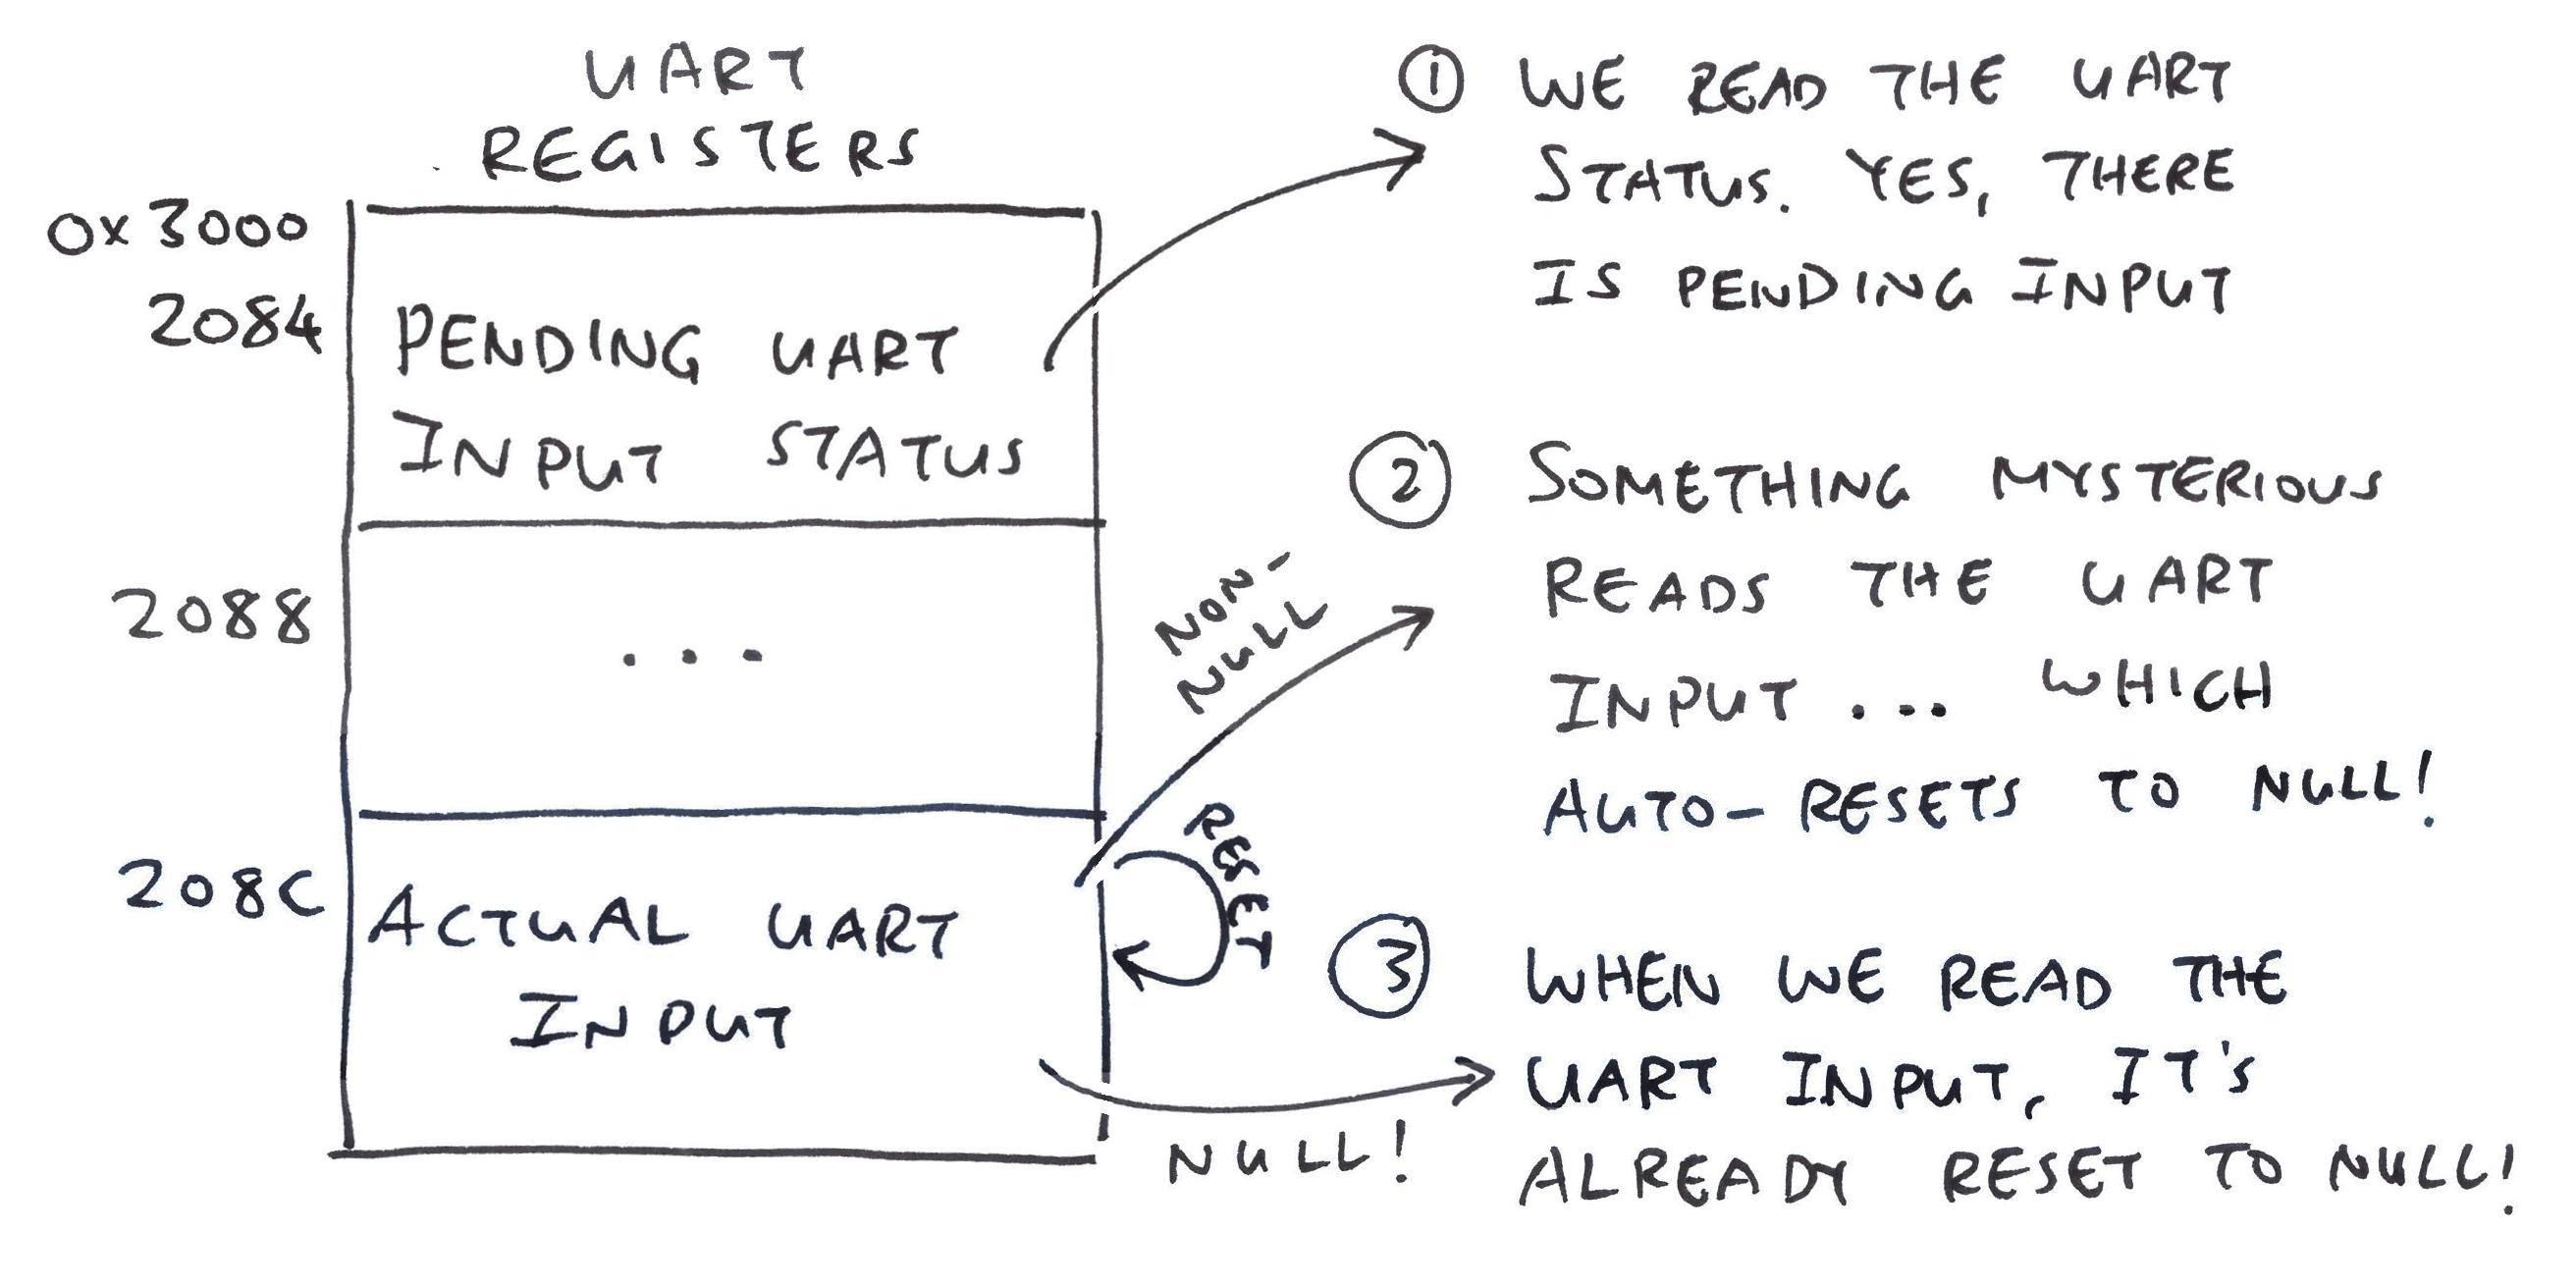 UART
REGISTERS
0x3000
2084
PENDING UART
INPUT STATUS
2088
...
208C
ACTUAL UART
INPUT
① WE READ THE UART
STATUS. YES, THERE
IS PENDING INPUT
NON-
NULL
② SOMETHING MYSTERIOUS
READS THE UART
INPUT ... WHICH
AUTO-RESETS TO NULL!
RESET
③ WHEN WE READ THE
UART INPUT, IT'S
ALREADY RESET TO NULL!
NULL!